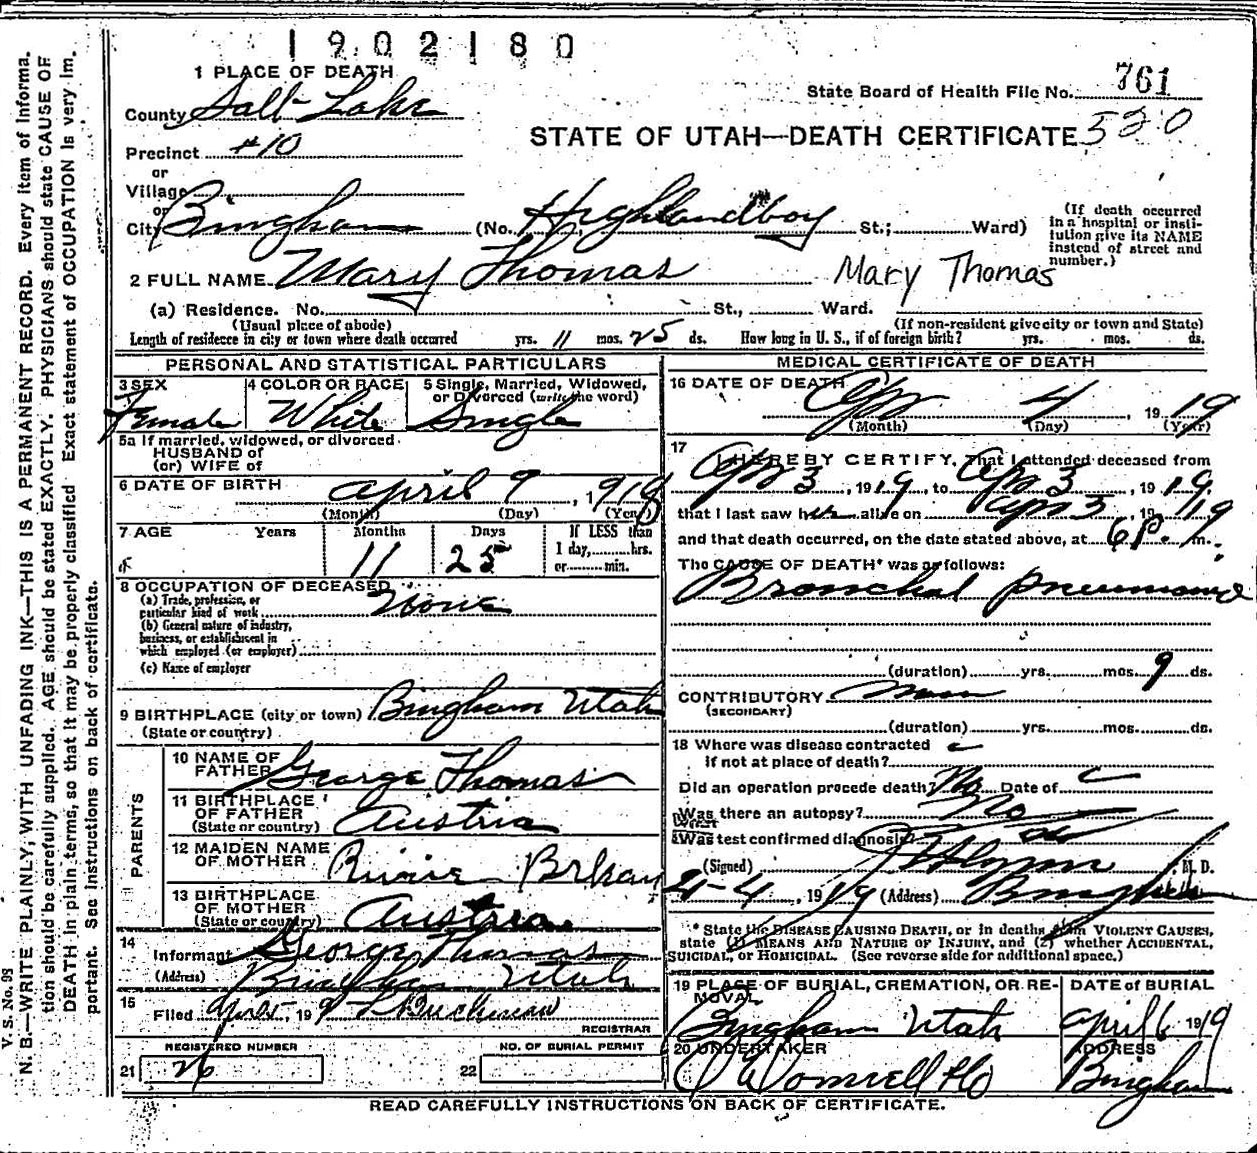 1902180
1 PLACE OF DEATH
State Board of Health File No. 761
County Salt Lake
STATE OF UTAH—DEATH CERTIFICATE 520
Precinct #10
or
Village
or
City Bingham (No. Highlandboy St.; Ward)
(If death occurred in a hospital or insti-
tution give its NAME instead of street and number.)
2 FULL NAME Mary Thomas Mary Thomas
(a) Residence. No. St., Ward.
(Usual place of abode) (If non-resident give city or town and State)
Length of residence in city or town where death occurred yrs. 11 mos. 25 ds. How long in U. S., if of foreign birth? yrs. mos. ds.
PERSONAL AND STATISTICAL PARTICULARS
3 SEX Female
4 COLOR OR RACE White
5 Single, Married, Widowed, or Divorced (write the word) Single
5a If married, widowed, or divorced
HUSBAND of
(or) WIFE of
6 DATE OF BIRTH April 9, 1918
(Month) (Day) (Year)
7 AGE Years Months 11 Days 25
If LESS than
1 day, hrs.
or min.
8 OCCUPATION OF DECEASED
(a) Trade, profession, or
particular kind of work None
(b) General nature of industry,
business, or establishment in
which employed (or employer)
(c) Name of employer
9 BIRTHPLACE (city or town) Bingham Utah
(State or country)
PARENTS
10 NAME OF FATHER George Thomas
11 BIRTHPLACE OF FATHER
(State or country) Austria
12 MAIDEN NAME OF MOTHER
13 BIRTHPLACE OF MOTHER
(State or country) Austria
14
Informant George Thomas
(Address) Bingham Utah
15
Filed Apr 5, 19
REGISTRAR
REGISTERED NUMBER
21 26
NO. OF BURIAL PERMIT
22
MEDICAL CERTIFICATE OF DEATH
16 DATE OF DEATH Apr 4, 1919
(Month) (Day) (Year)
17
I HEREBY CERTIFY, That I attended deceased from
Apr 3, 1919, to Apr 3, 1919,
that I last saw her alive on Apr 3, 1919
and that death occurred, on the date stated above, at 6 P. m.
The CAUSE OF DEATH* was as follows:
Bronchial pneumonia
(duration) yrs. mos. 9 ds.
CONTRIBUTORY
(SECONDARY)
(duration) yrs. mos. ds.
18 Where was disease contracted
if not at place of death?
Did an operation precede death? No Date of
Was there an autopsy? No
What test confirmed diagnosis?
(Signed) M. D.
4-4, 1919 (Address) Bingham
* State the DISEASE CAUSING DEATH, or in deaths from VIOLENT CAUSES,
state (1) MEANS AND NATURE OF INJURY, and (2) whether ACCIDENTAL,
SUICIDAL, or HOMICIDAL. (See reverse side for additional space.)
19 PLACE OF BURIAL, CREMATION, OR RE-
MOVAL
Bingham Utah
DATE of BURIAL
April 6 1919
20 UNDERTAKER
ADDRESS
Bingham
READ CAREFULLY INSTRUCTIONS ON BACK OF CERTIFICATE.
V. S. No. 98
N. B.—WRITE PLAINLY, WITH UNFADING INK—THIS IS A PERMANENT RECORD. Every item of informa-
tion should be carefully supplied. AGE should be stated EXACTLY. PHYSICIANS should state CAUSE OF
DEATH in plain terms, so that it may be properly classified. Exact statement of OCCUPATION is very im-
portant. See instructions on back of certificate.